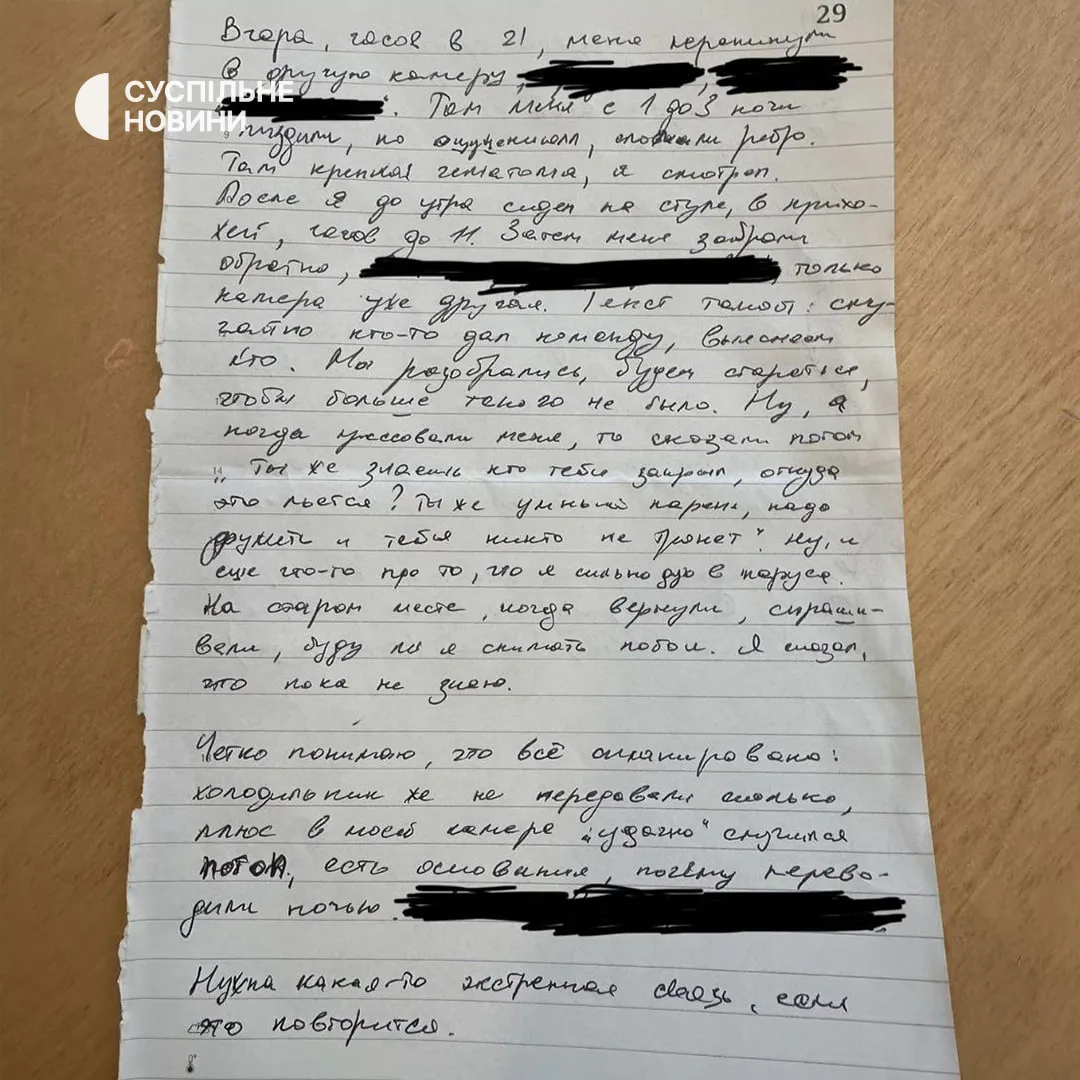 29
Вчера, часов в 21, меня перекинули
в другую камеру,
СУСПІЛЬНЕ
НОВИНИ
". Там меня с 1 до 3 ночи
пиздили, по ощущениям, сломали ребро.
Там крепкая гематома, я смотрел.
После я до утра сидел на стуле, в прихо-
жей, часов до 11. Затем меня забрали
обратно, только
камера уже другая. Текст такой: слу-
чайно кто-то дал команду, выясняем
кто. Мы разобрались, будем стараться,
чтобы больше такого не было. Ну, а
когда меня, то сказали потом
"Ты же знаешь кто тебя закрыл, откуда
это льется? Ты же умный парень, надо
дружить и тебя никто не тронет". Ну, и
еще что-то про то, что я сильно дую в паруса.
На старом месте, когда вернули, спраши-
вали, буду ли я снимать побои. Я сказал,
что пока не знаю.
Четко понимаю, что всё спланировано:
холодильник же не передавали сколько,
плюс в моей камере "удачно" случился
потоп, есть основания, почему перево-
дили ночью.
Нужна какая-то экстренная связь, если
это повторится.